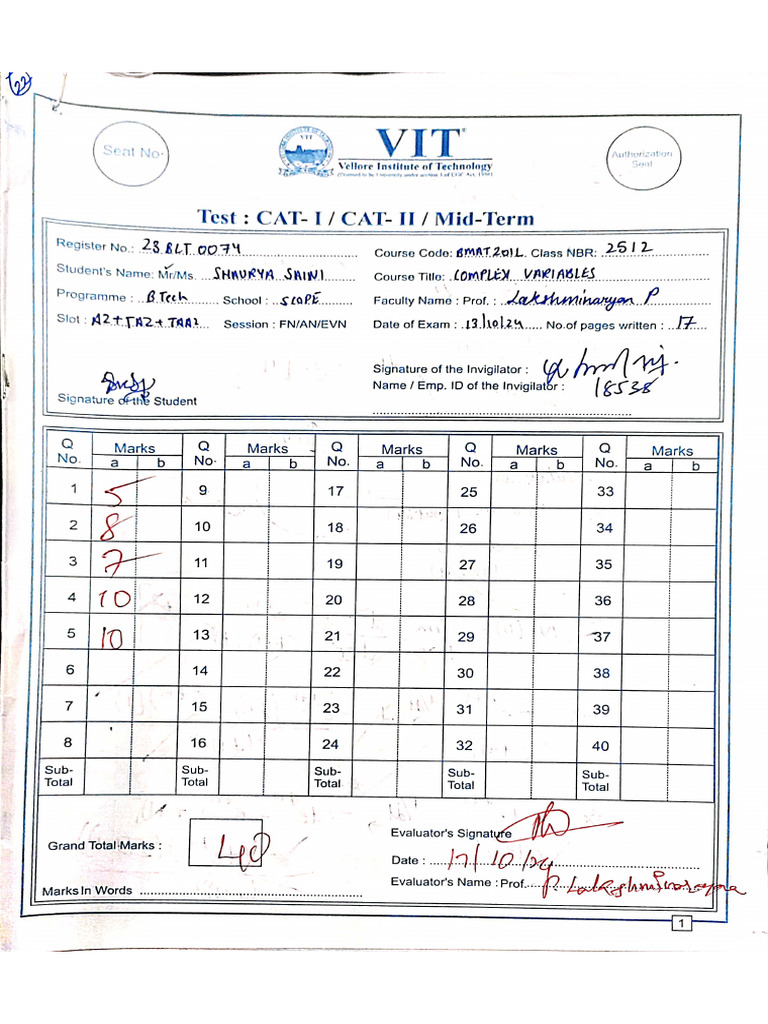 22
Seat No.
VIT
VIT®
Vellore Institute of Technology
(Deemed to be University under section 3 of UGC Act, 1956)
Authorization
Seal
Test : CAT- I / CAT- II / Mid-Term
Register No.: 23BLT0074
Course Code: BMAT201L Class NBR: 2512
Student's Name: Mr/Ms. SHAURYA SAINI
Course Title: COMPLEX VARIABLES
Programme : B.Tech School : SCOPE
Faculty Name : Prof. : Lakshminaryan P
Slot : A2+TA2+TAA2 Session : FN/AN/EVN
Date of Exam : 13/10/24 No.of pages written : 17
Signature of the Invigilator :
Name / Emp. ID of the Invigilator : 18538
Signature of the Student
Q No. Marks a b Q No. Marks a b Q No. Marks a b Q No. Marks a b Q No. Marks a b
1 5 9 17 25 33
2 8 10 18 26 34
3 7 11 19 27 35
4 10 12 20 28 36
5 10 13 21 29 37
6 14 22 30 38
7 15 23 31 39
8 16 24 32 40
Sub-Total Sub-Total Sub-Total Sub-Total Sub-Total
Grand Total Marks : 40
Evaluator's Signature
Date : 17/10/24
Marks In Words
Evaluator's Name : Prof. P. Lakshminarayana
1